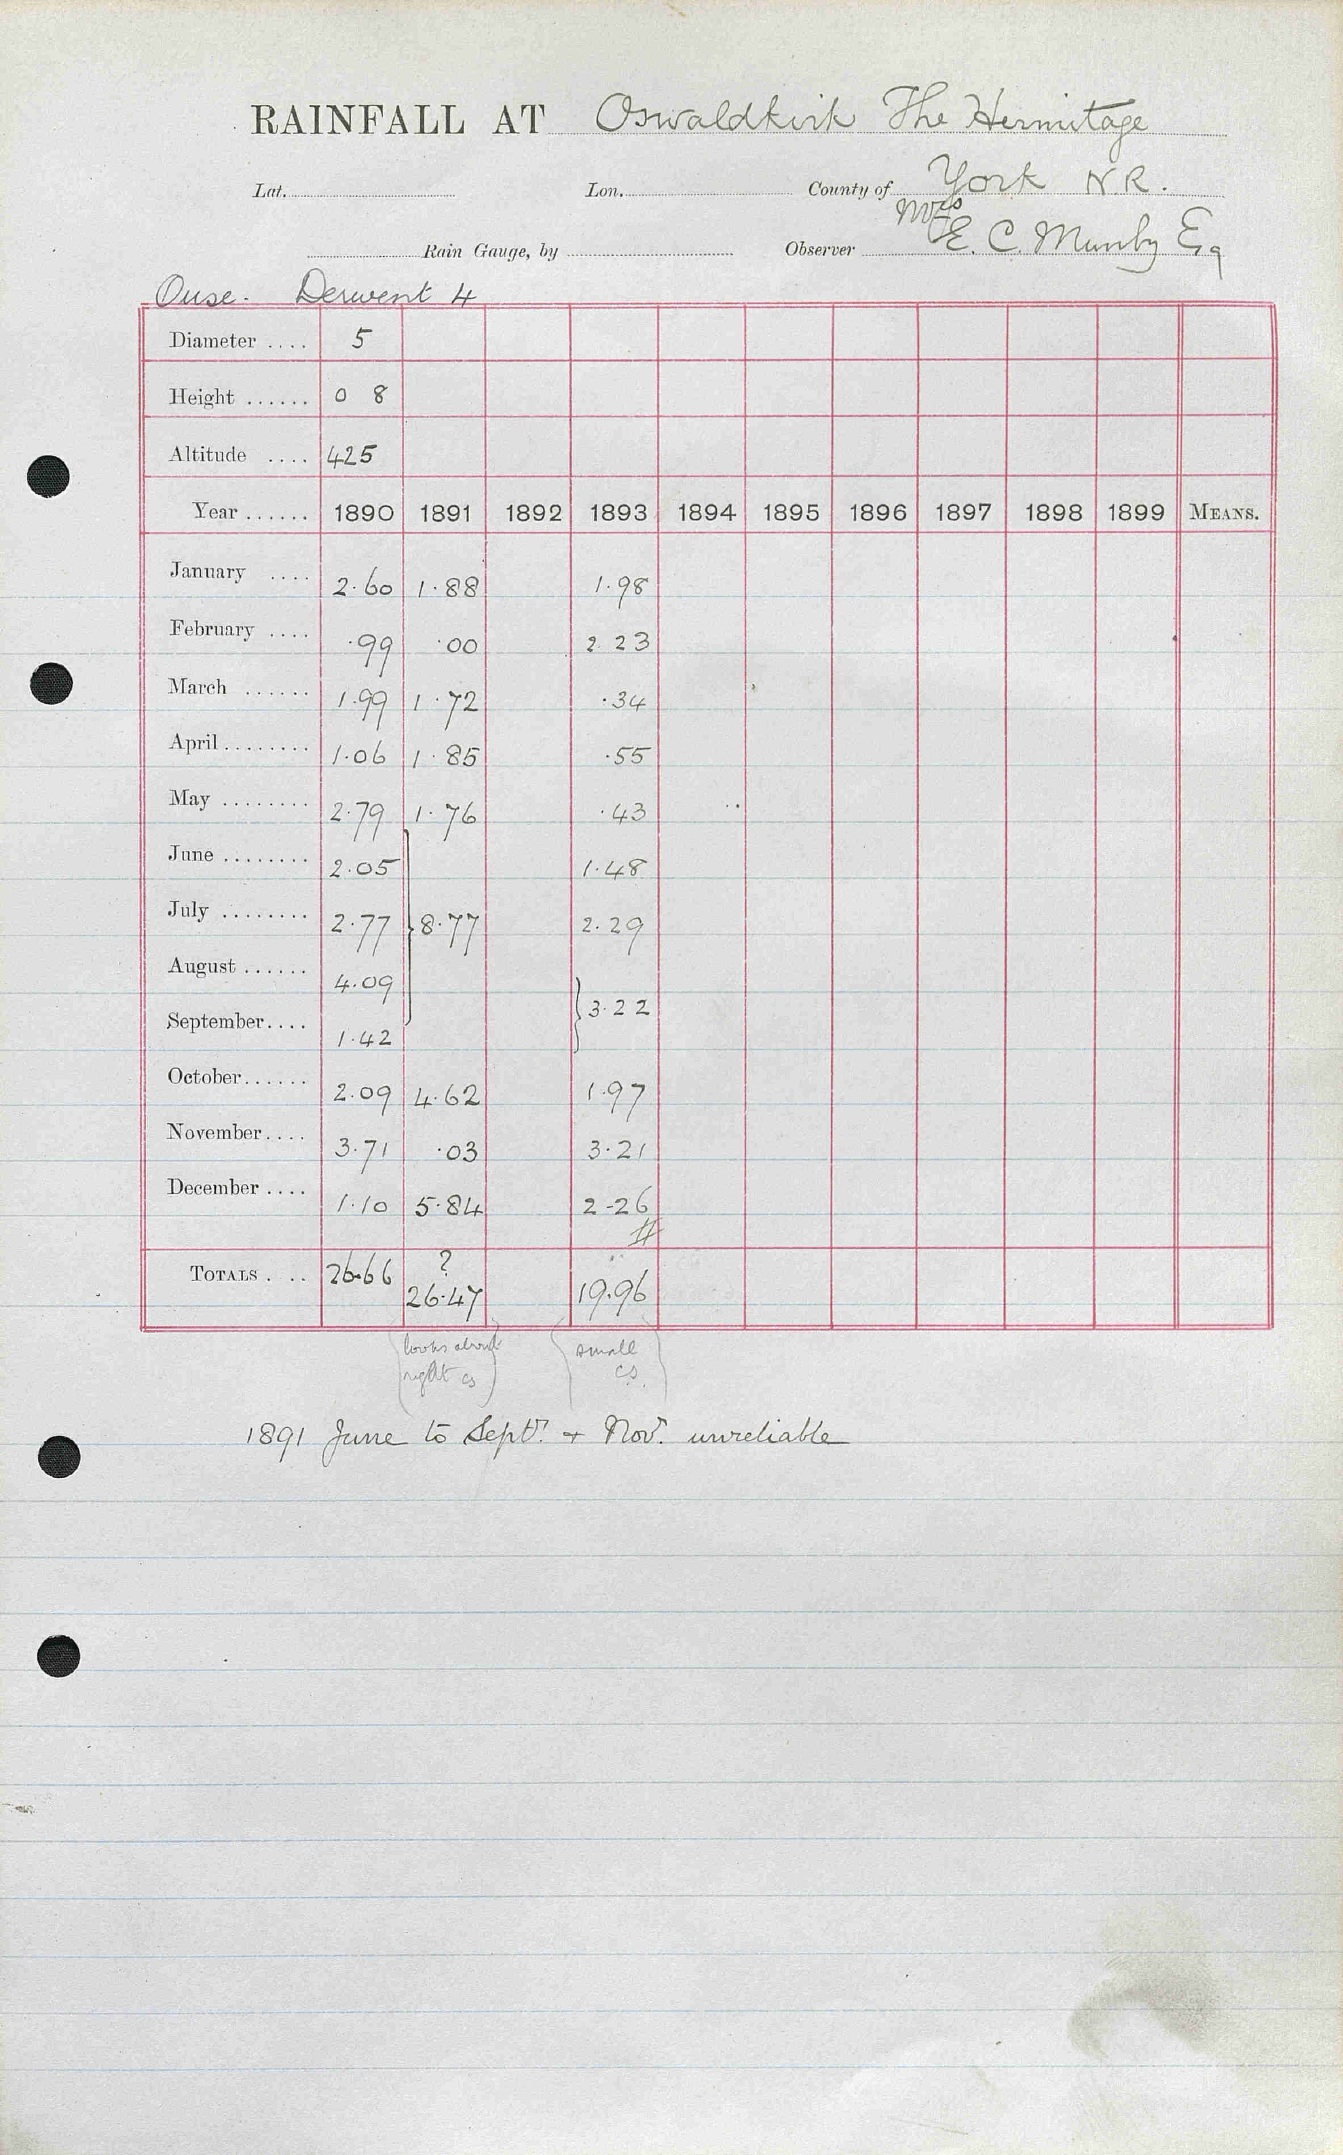 RAINFALL AT Oswaldkirk The Hermitage
Lat. Lon. County of York NR.
Mrs
Rain Gauge, by Observer E. C. Munby Esq
Ouse. Derwent 4
Diameter .... 5
Height ...... 0 8
Altitude .... 425
Year ...... 1890 1891 1892 1893 1894 1895 1896 1897 1898 1899 MEANS.
January .... 2.60 1.88 1.98
February .... .99 .00 2.23
March ...... 1.99 1.72 .34
April ........ 1.06 1.85 .55
May ........ 2.79 1.76 .43
June ........ 2.05 1.48
July ........ 2.77 } 8.77 2.29
August ...... 4.09
} 3.22
September .... 1.42
October ...... 2.09 4.62 1.97
November .... 3.71 .03 3.21
December .... 1.10 5.84 2-26
#
?
TOTALS . .. 26.66 26.47 19.96
(looks about (small
right cs) cs.)
1891 June to Septr. + Novr. unreliable